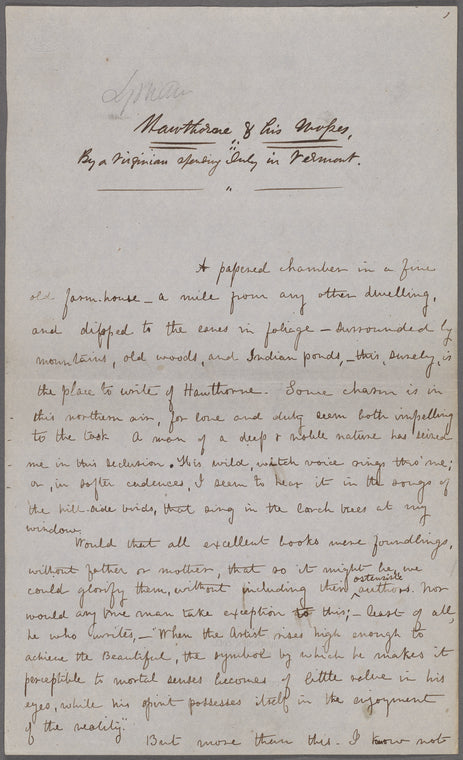 Hawthorne & his Mosses,
By a Virginian spending July in Vermont.
A papered chamber in a fine
old farm-house — a mile from any other dwelling,
and dipped to the eaves in foliage — surrounded by
mountains, old woods, and Indian ponds, — this, surely, is
the place to write of Hawthorne. Some charm is in
this northern air, for love and duty seem both impelling
to the task. A man of a deep & noble nature has seized
me in this seclusion. His wild, witch voice rings thro' me;
or, in softer cadences, I seem to hear it in the songs of
the hill-side birds, that sing in the larch trees at my
window.
Would that all excellent books were foundlings,
without father or mother, that so it might be, we
could glorify them, without including their ostensible authors. Nor
would any true man take exception to this; — least of all,
he who writes, — "When the Artist rises high enough to
achieve the Beautiful, the symbol by which he makes it
perceptible to mortal senses becomes of little value in his
eyes, while his spirit possesses itself in the enjoyment
of the reality."
But more than this. I know not